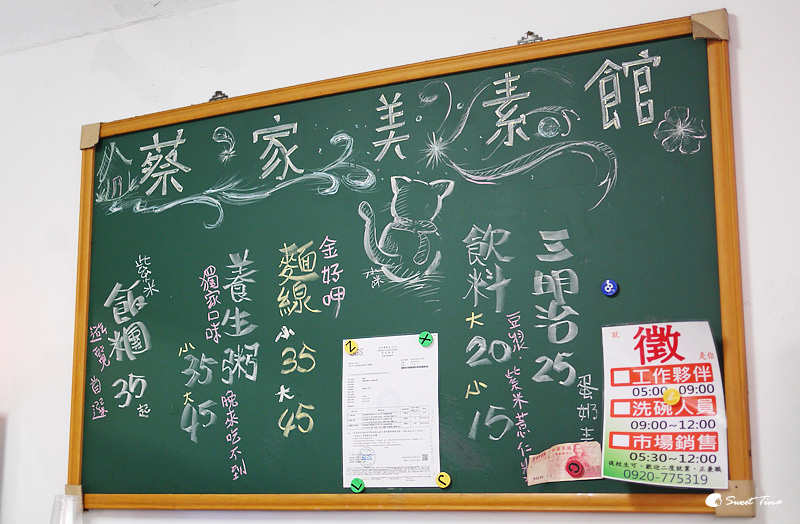 蔡家美素館
三明治25
蛋奶素
飲料
大20
小15
豆漿、紫米薏仁漿
金好呷
麵線
小35
大45
養生粥
獨家口味
小35
大45
晚來吃不到
紫米
飯糰
35起
遊覽首選
就
徵
是你
工作夥伴
05:00~09:00
洗碗人員
09:00~12:00
市場銷售
05:30~12:00
夜校生可、歡迎二度就業、正兼職
0920-775319
Sweet Tina